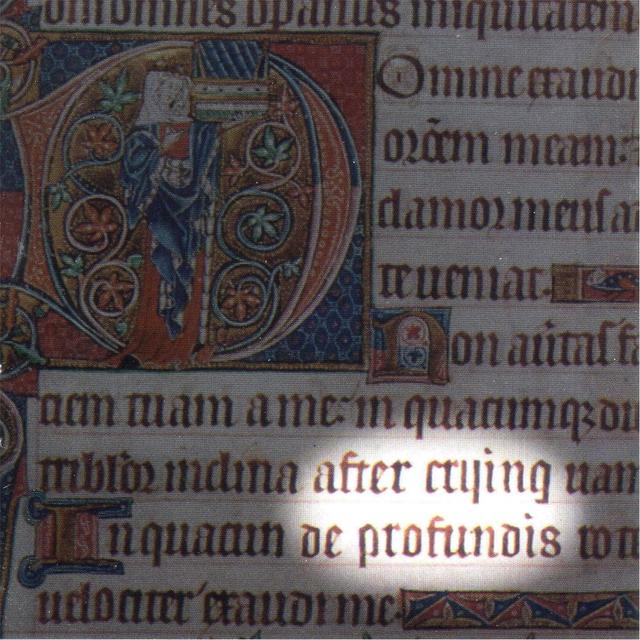 omnes iniquitatem
Omine exaudi
orōem meam:
clamor meus a
te ueniat.
Non aūtas fa
ciem tuam a me: in quacumqꝫ di
tribl'or inclina after crying uam
In quacun de profundis
uelociter exaudi me